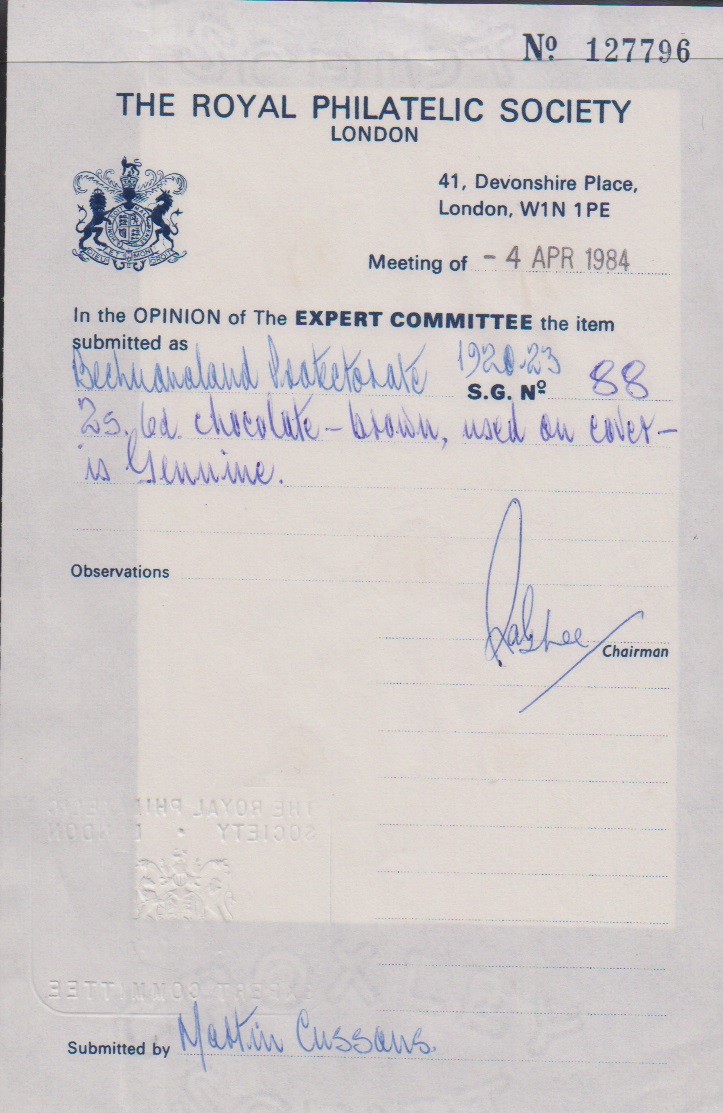 Nº 127796
THE ROYAL PHILATELIC SOCIETY
LONDON
41, Devonshire Place,
London, W1N 1PE
Meeting of - 4 APR 1984
In the OPINION of The EXPERT COMMITTEE the item
submitted as
Bechuanaland Protectorate 1920-23 S.G. Nº 88
2s. 6d. chocolate – brown, used on cover –
is Genuine.
Observations
Chairman
THE ROYAL PHILATELIC
SOCIETY • LONDON
EXPERT COMMITTEE
Submitted by Martin Cussons.